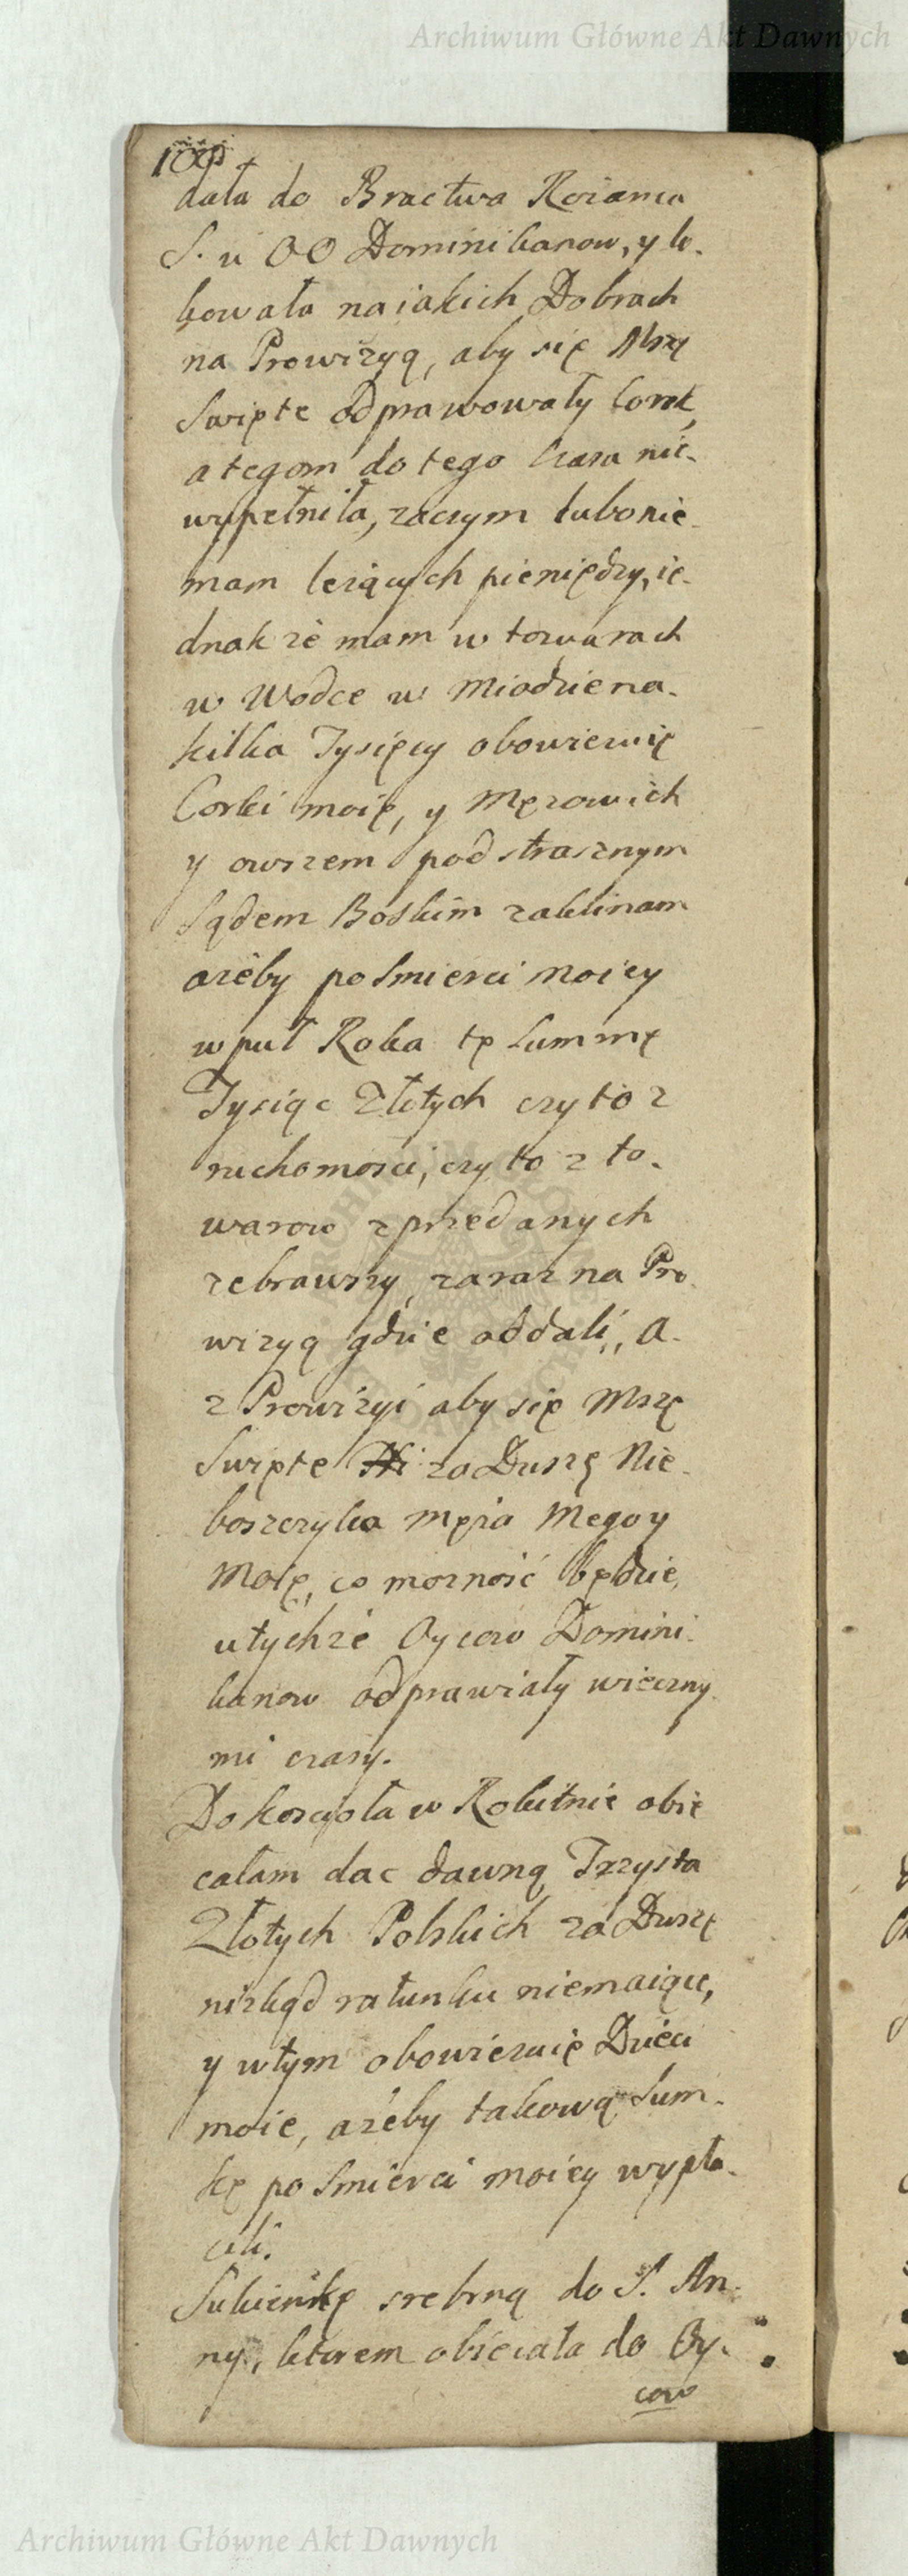 Archiwum Główne Akt Dawnych
100
dała do Bractwa Rożanca
S. u OO Dominikanow, y lo-
kowała na iakich Dobrach
na Prowizyą, aby się Msze
Swięte odprawowały
a tegom do tego czasu nie-
wypełniła, zaczym lubo nie-
mam lezących pieniędzy, ie-
dnak że mam w towarach
w Wodce w Miodzie na-
kilka Tysięcy obowiezuię
Corki moię, y Męzowich
y owszem pod strasznym
Sądem Boskim zaklinam
ażeby po Smierci Moiey
w puł Roka tę Summę
Tysiąc Złotych czy to z
ruchomosci, czy to z to-
warow zprzedanych
zebrawszy, zaraz na Pro-
wizyą gdzie oddali, a-
z Prowizyi aby się Mszę
Swięte za Duszę Nie-
boszczyka Męża Mego y
Moię, co moznośc będzie,
u tychże Oycow Domini-
kanow odprawiały wieczny-
mi czasy.
Do koscioła w Rokitnie obie
całam dac dawną Trzysta
Złotych Polskich za Duszę
nizkąd ratunku niemaiące,
y w tym obowiezuię Dzieci
moie, ażeby takową Sum-
kę po Smierci moiey wypła-
cili.
Sukienkę srebrną do S. An-
ny, ktorem obiecała do Oy-
cow
Archiwum Główne Akt Dawnych